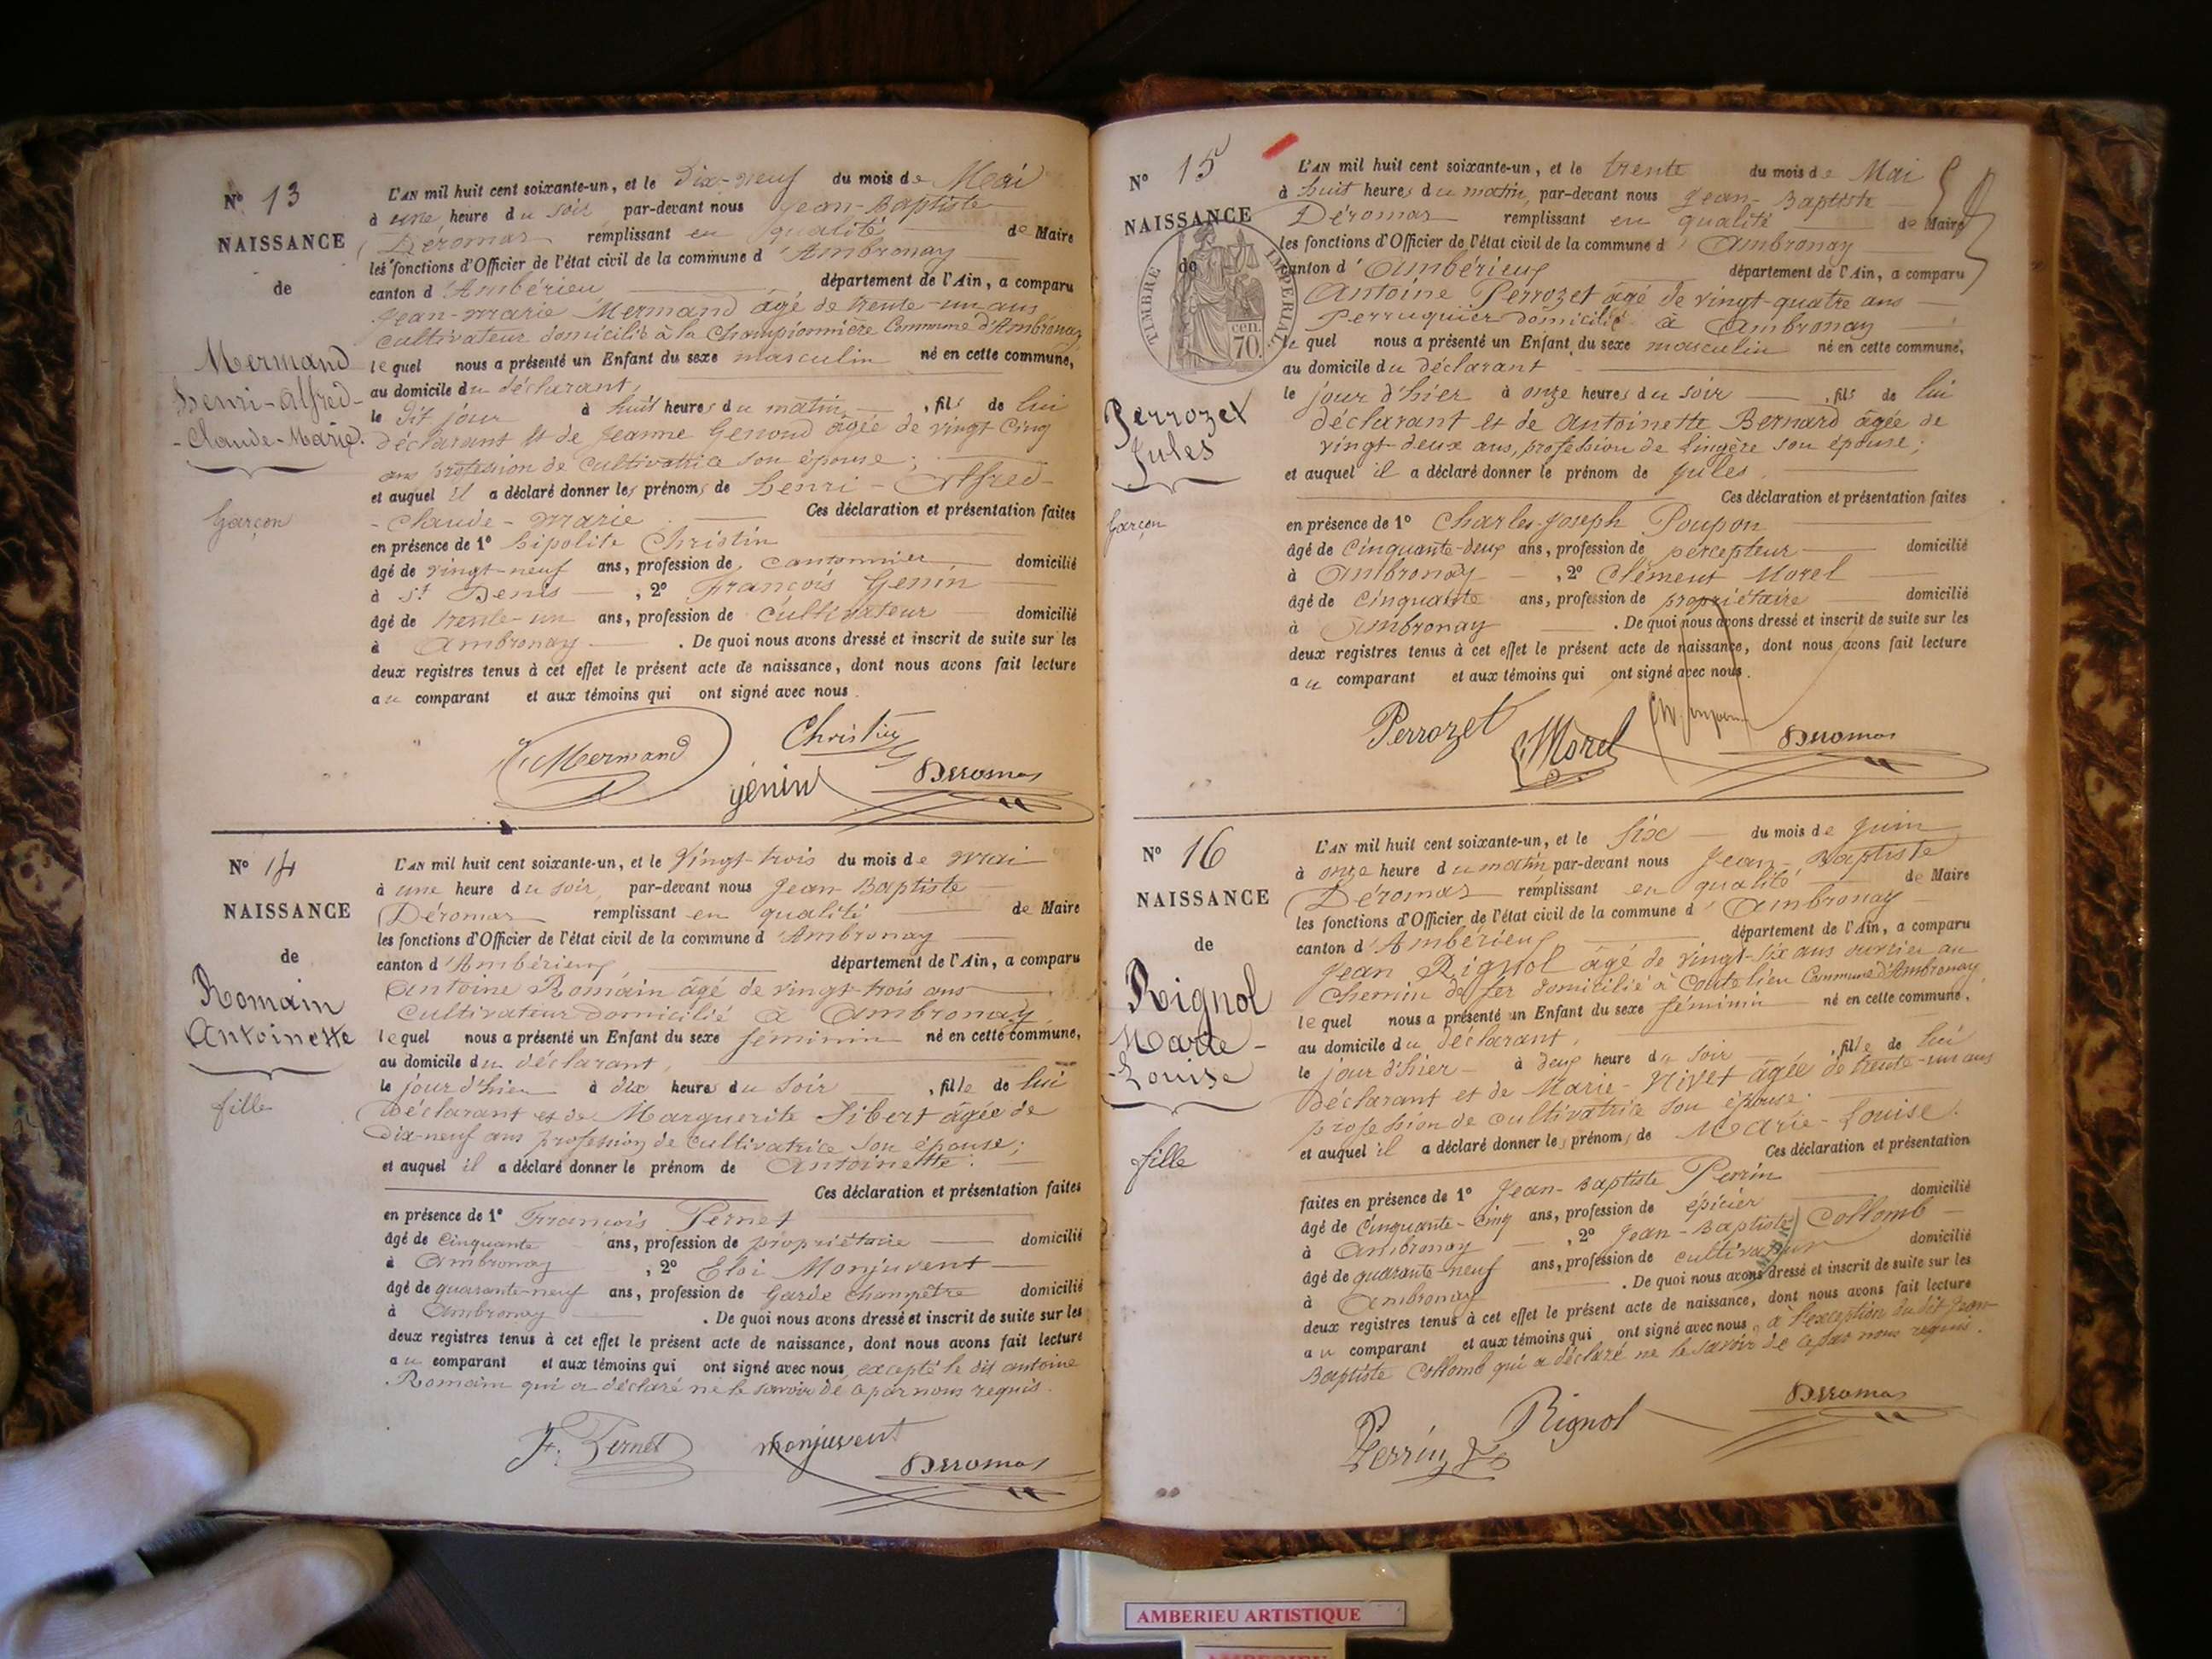 Nº 13
NAISSANCE
de
Mermand
Henri-Alfred-
-Claude-Marie.
Garçon
L'AN mil huit cent soixante-un, et le Dix-neuf du mois de Mai
à une heure du soir par-devant nous Jean-Baptiste
Déromas remplissant en qualité de Maire
les fonctions d'Officier de l'état civil de la commune d'Ambronay
canton d'Ambérieu département de l'Ain, a comparu
Jean-Marie Mermand âgé de trente-un ans
cultivateur domicilié à la Championnière Commune d'Ambronay
lequel nous a présenté un Enfant du sexe masculin né en cette commune,
au domicile du déclarant,
le dit jour à huit heures du matin, fils de lui
déclarant et de Jeanne Genoud âgée de vingt cinq
ans profession de cultivatrice son épouse;
et auquel il a déclaré donner les prénoms de henri-Alfred-
-Claude-Marie. Ces déclaration et présentation faites
en présence de 1º hipolite Christin
âgé de vingt-neuf ans, profession de cantonnier domicilié
à St Denis, 2º François Genin
âgé de trente-un ans, profession de cultivateur domicilié
à Ambronay. De quoi nous avons dressé et inscrit de suite sur les
deux registres tenus à cet effet le présent acte de naissance, dont nous avons fait lecture
au comparant et aux témoins qui ont signé avec nous.
Mermand
Christin
génin
Deromas
Nº 14
NAISSANCE
de
Romain
Antoinette
fille
L'AN mil huit cent soixante-un, et le Vingt-trois du mois de mai
à une heure du soir, par-devant nous Jean-Baptiste
Déromas remplissant en qualité de Maire
les fonctions d'Officier de l'état civil de la commune d'Ambronay
canton d'Ambérieux département de l'Ain, a comparu
Antoine Romain âgé de vingt-trois ans
cultivateur domicilié à Ambronay
lequel nous a présenté un Enfant du sexe féminin né en cette commune,
au domicile du déclarant,
le jour d'hier à dix heures du soir, fille de lui
déclarant et de Marguerite Sibert âgée de
dix-neuf ans profession de cultivatrice son épouse;
et auquel il a déclaré donner le prénom de Antoinette.
Ces déclaration et présentation faites
en présence de 1º François Pernet
âgé de Cinquante ans, profession de propriétaire domicilié
à Ambronay, 2º Eloi Monjuvent
âgé de quarante-neuf ans, profession de Garde champêtre domicilié
à Ambronay. De quoi nous avons dressé et inscrit de suite sur les
deux registres tenus à cet effet le présent acte de naissance, dont nous avons fait lecture
au comparant et aux témoins qui ont signé avec nous, excepté le dit antoine
Romain qui a déclaré ne le savoir de ce par nous requis.
F. Pernet
monjuvent
Deromas
Nº 15
NAISSANCE
de
TIMBRE IMPERIAL
70 cen.
Perrozet
Jules
Garçon
L'AN mil huit cent soixante-un, et le trente du mois de Mai
à huit heures du matin, par-devant nous Jean-Baptiste
Déromas remplissant en qualité de Maire
les fonctions d'Officier de l'état civil de la commune d'Ambronay
canton d'Ambérieux département de l'Ain, a comparu
Antoine Perrozet âgé de vingt-quatre ans
Perruquier domicilié à Ambronay
lequel nous a présenté un Enfant du sexe masculin né en cette commune,
au domicile du déclarant
le jour d'hier à onze heures du soir, fils de lui
déclarant et de Antoinette Bernard âgée de
vingt-deux ans, profession de lingère son épouse;
et auquel il a déclaré donner le prénom de Jules.
Ces déclaration et présentation faites
en présence de 1º Charles-Joseph Poupon
âgé de Cinquante-deux ans, profession de percepteur domicilié
à Ambronay, 2º Clément Morel
âgé de cinquante ans, profession de propriétaire domicilié
à Ambronay. De quoi nous avons dressé et inscrit de suite sur les
deux registres tenus à cet effet le présent acte de naissance, dont nous avons fait lecture
au comparant et aux témoins qui ont signé avec nous.
Perrozet
Morel
Deromas
Nº 16
NAISSANCE
de
Rignol
Marie-
-Louise
fille
L'AN mil huit cent soixante-un, et le six du mois de Juin
à onze heure du matin par-devant nous Jean-Baptiste
Déromas remplissant en qualité de Maire
les fonctions d'Officier de l'état civil de la commune d'Ambronay
canton d'Ambérieux département de l'Ain, a comparu
Jean Rignol âgé de vingt-six ans ouvrier au
Chemin de fer domicilié à Coutelieu Commune d'Ambronay
lequel nous a présenté un Enfant du sexe féminin né en cette commune,
au domicile du déclarant,
le jour d'hier à deux heure du soir, fille de lui
déclarant et de Marie-Nivet âgée de trente-un ans
profession de cultivatrice son épouse.
et auquel il a déclaré donner les prénoms de Marie-Louise.
Ces déclaration et présentation
faites en présence de 1º Jean-Baptiste Perrin
âgé de Cinquante-cinq ans, profession de épicier domicilié
à Ambronay, 2º Jean-Baptiste Collomb
âgé de quarante-neuf ans, profession de cultivateur domicilié
à Ambronay. De quoi nous avons dressé et inscrit de suite sur les
deux registres tenus à cet effet le présent acte de naissance, dont nous avons fait lecture
au comparant et aux témoins qui ont signé avec nous, à l'exception du dit Jean-
Baptiste Collomb qui a déclaré ne le savoir de ce par nous requis.
Perrin
Rignol
Deromas
AMBERIEU ARTISTIQUE
AMBERIEU